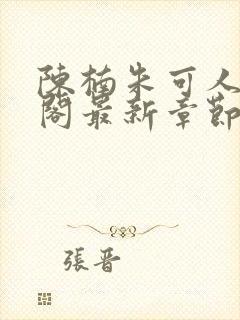 陳楠朱可人
閣最新章節
張晋